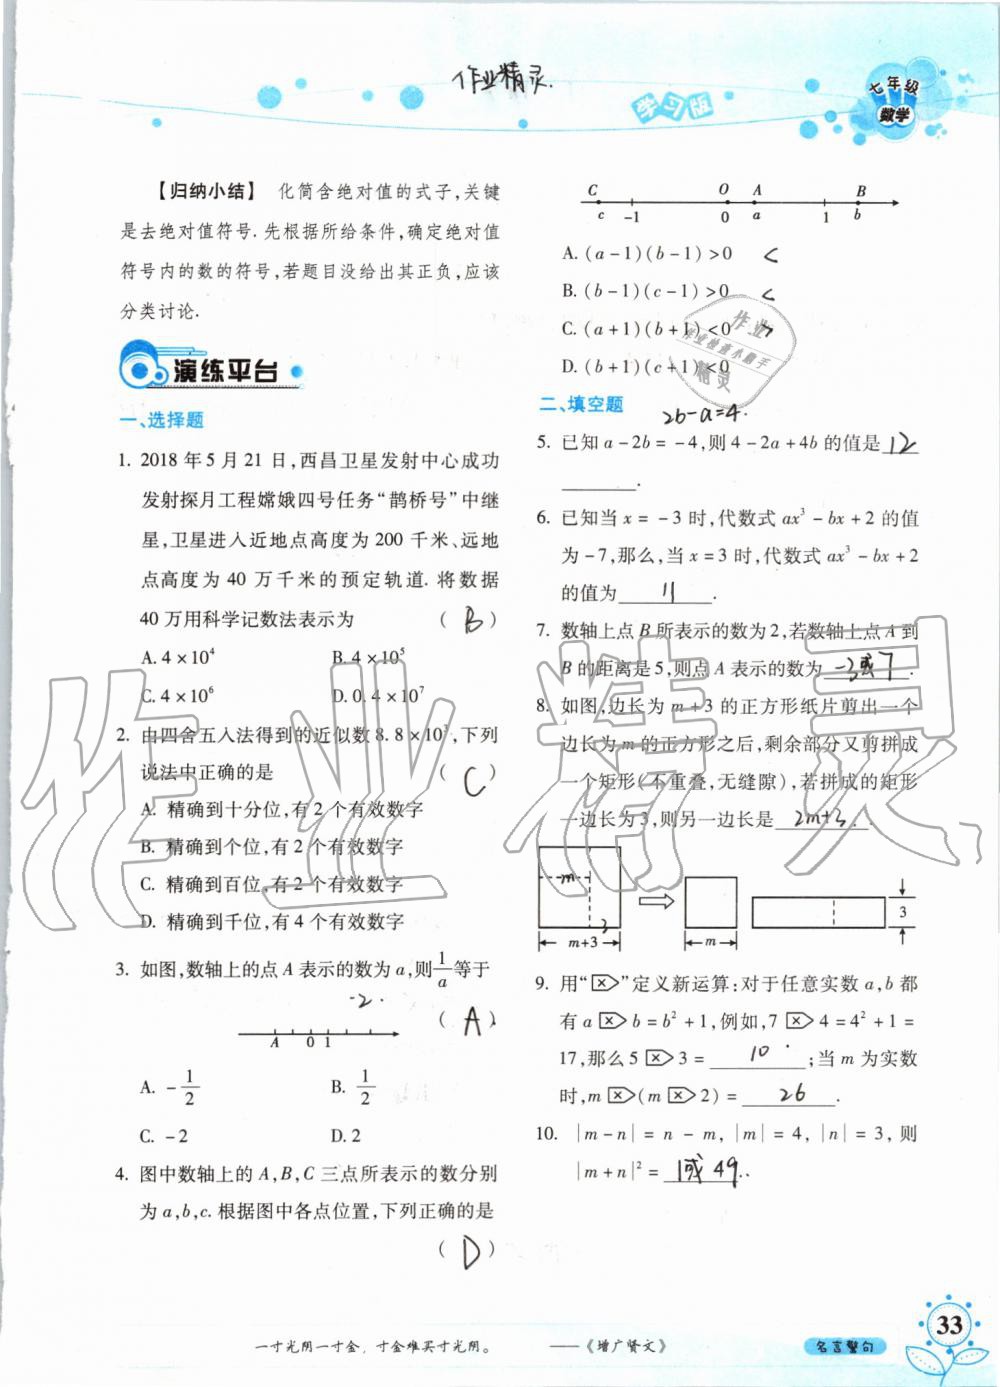 作业精灵.
学习版
七年级
数学
【归纳小结】 化简含绝对值的式子,关键
是去绝对值符号.先根据所给条件,确定绝对值
符号内的数的符号,若题目没给出其正负,应该
分类讨论.
演练平台
一、选择题
1. 2018年5月21日,西昌卫星发射中心成功
发射探月工程嫦娥四号任务“鹊桥号”中继
星,卫星进入近地点高度为200千米、远地
点高度为40万千米的预定轨道.将数据
40万用科学记数法表示为 ( B )
A. 4×10⁴ B. 4×10⁵
C. 4×10⁶ D. 0.4×10⁷
2. 由四舍五入法得到的近似数8.8×10³,下列
说法中正确的是 ( C )
A. 精确到十分位,有2个有效数字
B. 精确到个位,有2个有效数字
C. 精确到百位,有2个有效数字
D. 精确到千位,有4个有效数字
3. 如图,数轴上的点A表示的数为a,则1/a等于
-2. ( A )
A 0 1
A. -1/2 B. 1/2
C. -2 D. 2
4. 图中数轴上的A,B,C三点所表示的数分别
为a,b,c.根据图中各点位置,下列正确的是
( D )
C O A B
c -1 0 a 1 b
A. (a-1)(b-1)>0 <
B. (b-1)(c-1)>0 <
C. (a+1)(b+1)<0 >
D. (b+1)(c+1)<0
二、填空题
2b-a=4.
5. 已知a-2b=-4,则4-2a+4b的值是 12
.
6. 已知当x=-3时,代数式ax³-bx+2的值
为-7,那么,当x=3时,代数式ax³-bx+2
的值为 11 .
7. 数轴上点B所表示的数为2,若数轴上点A到
B的距离是5,则点A表示的数为 -3或7 .
8. 如图,边长为m+3的正方形纸片剪出一个
边长为m的正方形之后,剩余部分又剪拼成
一个矩形(不重叠,无缝隙),若拼成的矩形
一边长为3,则另一边长是 2m+3 .
m
3
m+3 m 3
9. 用“⊠”定义新运算:对于任意实数a,b都
有a⊠b=b²+1,例如,7⊠4=4²+1=
17,那么5⊠3= 10 ;当m为实数
时,m⊠(m⊠2)= 26 .
10. |m-n|=n-m,|m|=4,|n|=3,则
|m+n|²= 1或49 .
作业
作业检查小助手
精灵
作业精灵
一寸光阴一寸金,寸金难买寸光阴。 ——《增广贤文》
名言警句
33